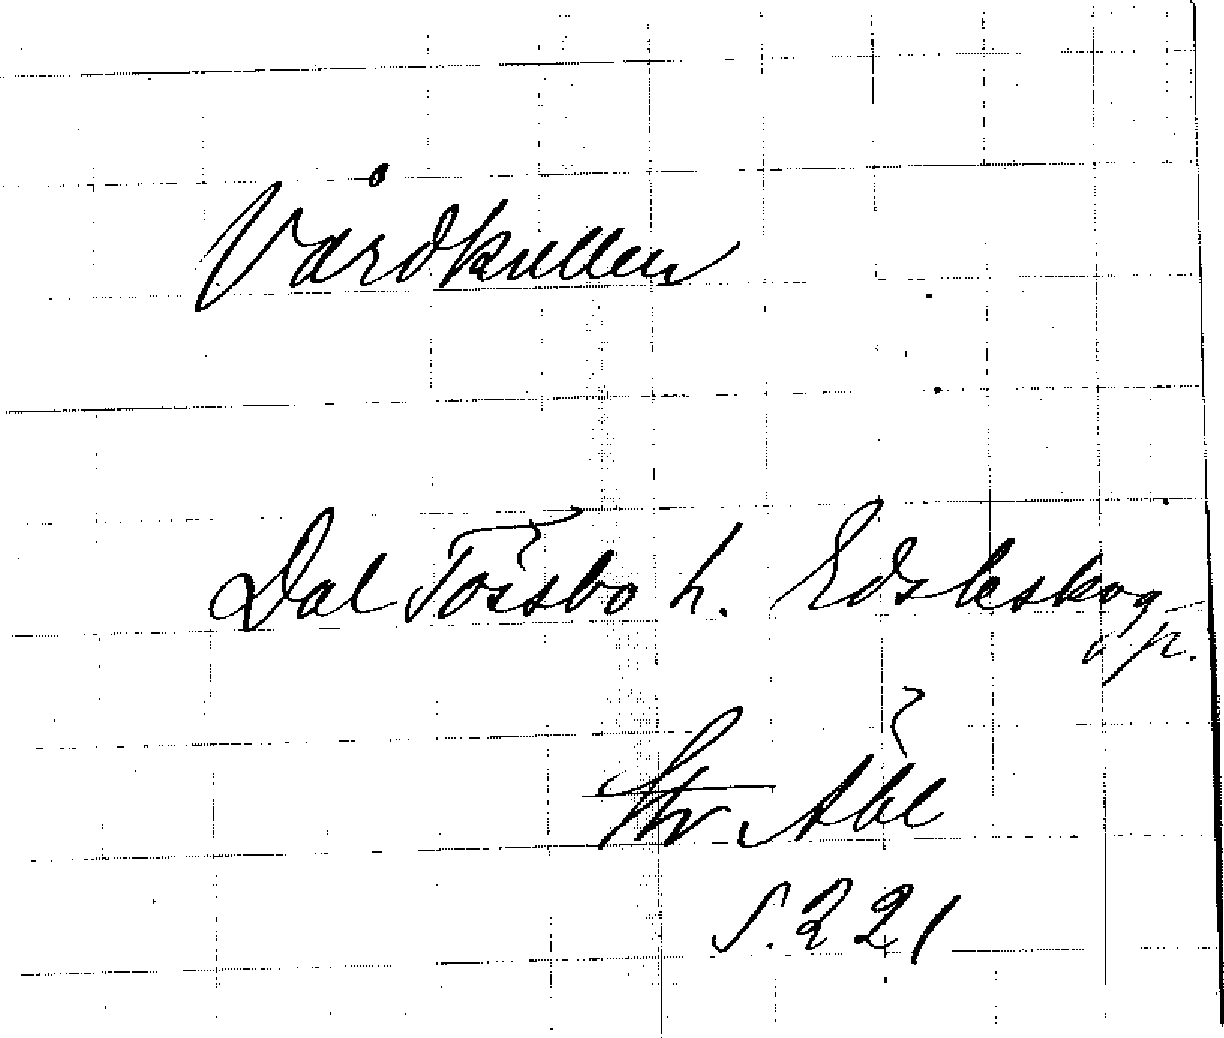 Vårdkullen
Dal Tössbo h. Edsleskog
p.
S. 221